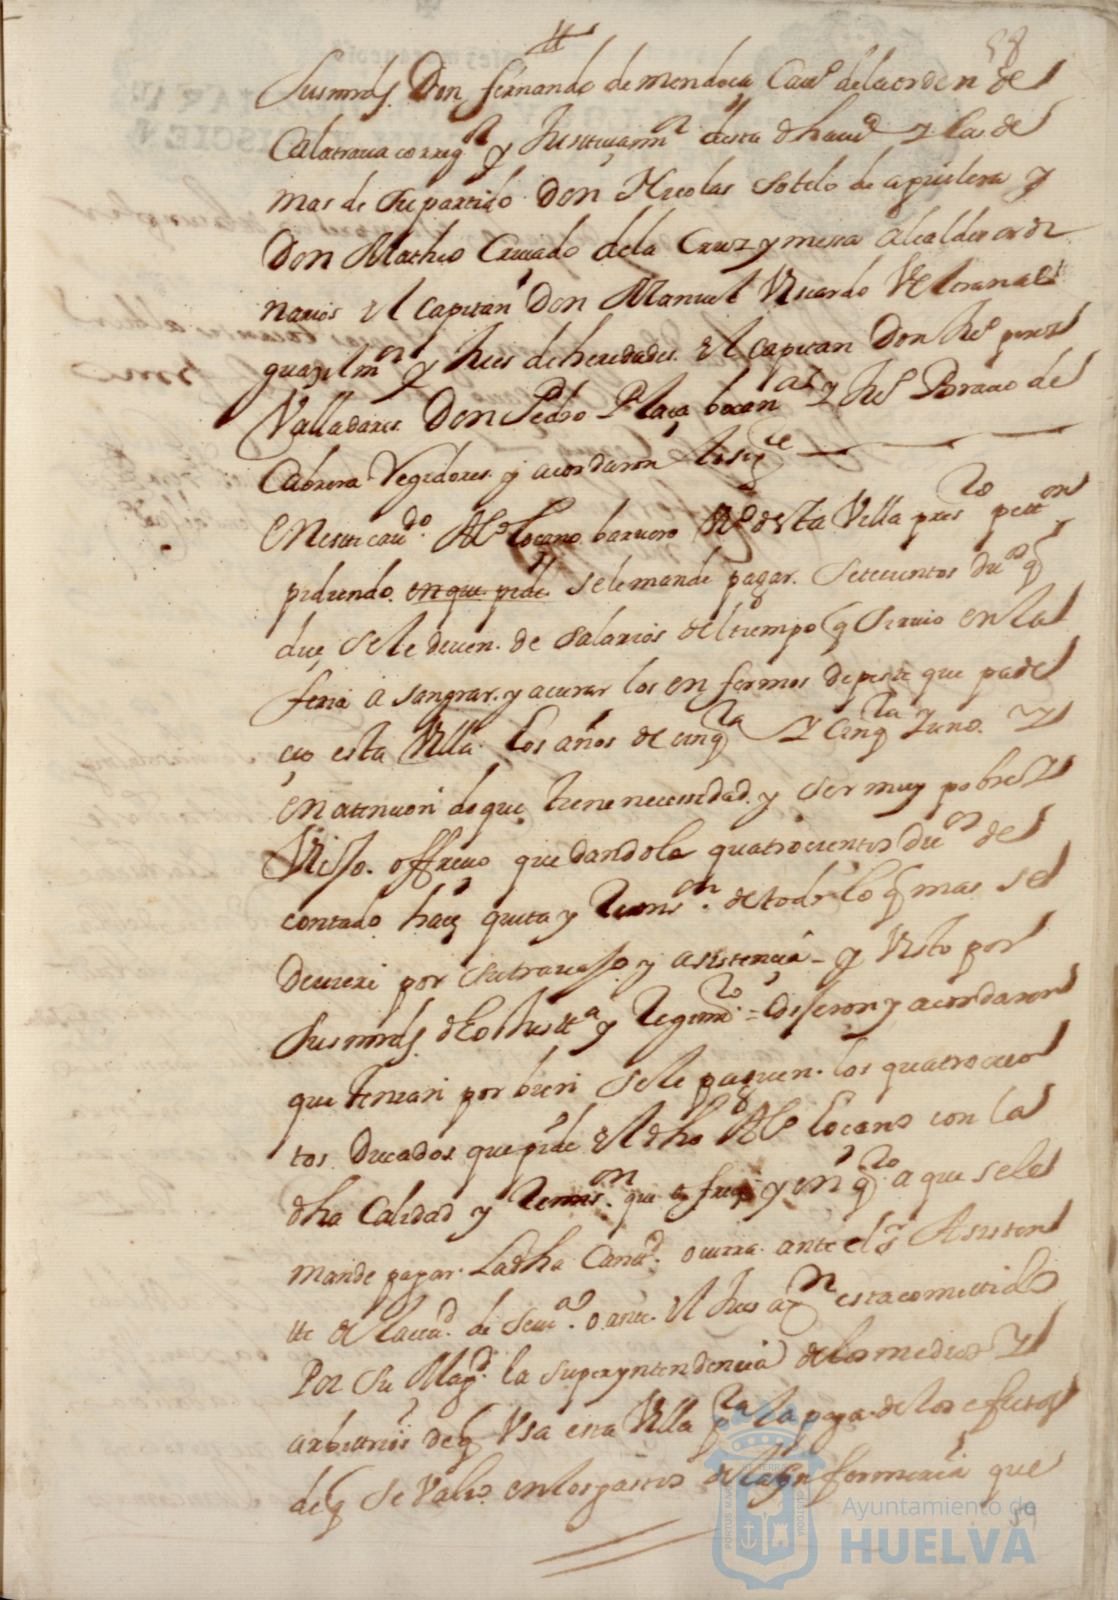 58
susmrds. Don fernando de mendoça Cauo. dela orden de
Calatraua correg.or y Justiciamr. desta dha ciud. y las de
mas de su partido Don Nicolas sotelo de aguilera y
Don Matheo Cruzado dela Cruz y messa alcaldes ordi
narios el capitan Don Manuel Vicardo Veltran al
guazil mor. y Jues de heredades. el capitan Don Jho. perez
Valladares. Don Pedro Plaça bocan y Jho. Brauo de
Cabrera Regidores. y acordaron lo sigte
En este caudo. Alo. loçano baruero Vo. desta Villa presto petton
pidiendo. en que pide. se le mande pagar. setecientos duos q
dize se le deuen. de salarios del tiempo q siruio en la
feria a sangrar. y acurar los en fermos de peste que pade
cio esta Villa. los años de cinqta y cinqta y uno. y
en atencion deque tiene necessidad. y ser muy pobre y
Viejo. offreçio que dandole quatrocientos duos de
contado haze quita y remison. de todo lo q mas se
deuiere por su trauajo y asistencia - y Visto por
sus mrds. dha Justta. y Regimto. = dixeron y acordaron
que tenian por bien se le paguen. los quatrocien
tos ducados que pide el dho Alo. loçano con la
dha Calidad y remison. que ofreçe y en qto. a que se le
mande pagar. La dha Cantd. ocurra. ante el sr. Asisten
te de la ciud. de seuia. o ante. el Jues a qn esta comettido
Por su Magd. la superyntendencia de los medios y
arbitrios de q Usa esta Villa pa la paga. de los efectos
de q se Valio. en los gastos de la enfermeria que
Ayuntamiento de
HUELVA